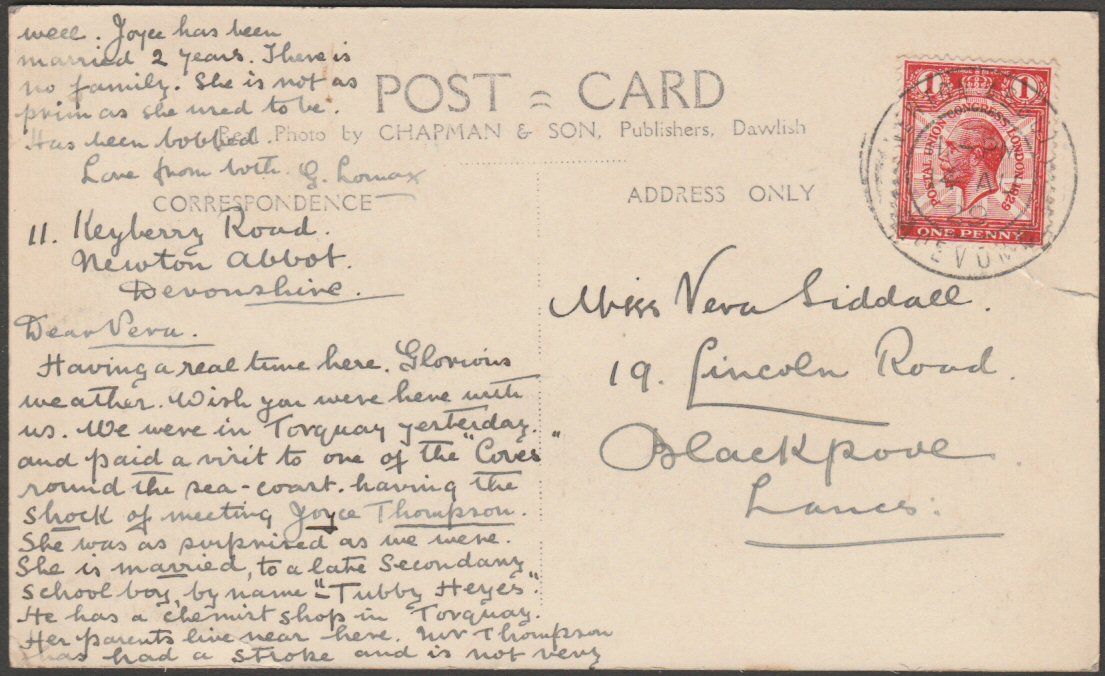 POST CARD
Real Photo by CHAPMAN & SON, Publishers, Dawlish
CORRESPONDENCE
ADDRESS ONLY
1 1
POSTAL UNION CONGRESS LONDON 1929
ONE PENNY
DEVON
11. Keyberry Road.
Newton Abbot.
Devonshire.
Dear Vera.
Having a real time here. Glorious
weather. Wish you were here with
us. We were in Torquay yesterday.
and paid a visit to one of the "Coves"
round the sea-coast. having the
shock of meeting Joyce Thompson.
She was as surprised as we were.
She is married, to a late Secondary
school boy, by name "Tubby Heyes".
He has a chemist shop in Torquay.
Her parents live near here. Mr Thompson
has had a stroke and is not very
well. Joyce has been
married 2 years. There is
no family. She is not as
prim as she used to be.
Has been bobbed.
Love from both. G. Lomax
Miss Vera Siddall.
19. Lincoln Road.
Blackpool
Lancs.